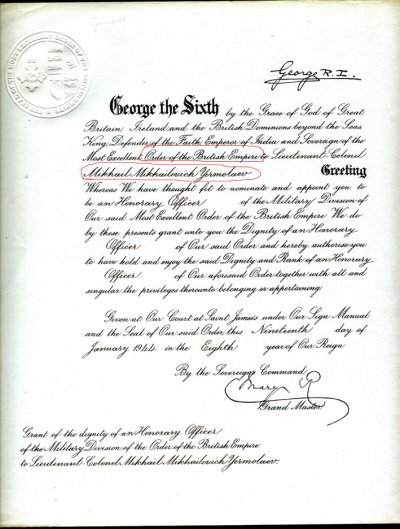 George R.I.
George the Sixth by the Grace of God of Great
Britain, Ireland and the British Dominions beyond the Seas
King, Defender of the Faith, Emperor of India and Sovereign of the
Most Excellent Order of the British Empire to Lieutenant-Colonel
Mikhail Mikhailovich Yermolaev Greeting
Whereas We have thought fit to nominate and appoint you to
be an Honorary Officer of the Military Division of
Our said Most Excellent Order of the British Empire We do
by these presents grant unto you the Dignity of an Honorary
Officer of Our said Order and hereby authorise you
to have hold and enjoy the said Dignity and Rank of an Honorary
Officer of Our aforesaid Order together with all and
singular the privileges thereunto belonging or appertaining.
Given at Our Court at Saint James's under Our Sign Manual
and the Seal of Our said Order this Nineteenth day of
January 1944 in the Eighth year of Our Reign
By the Sovereign's Command
Mary R
Grand Master
Grant of the dignity of an Honorary Officer
of the Military Division of the Order of the British Empire
to Lieutenant-Colonel Mikhail Mikhailovich Yermolaev.